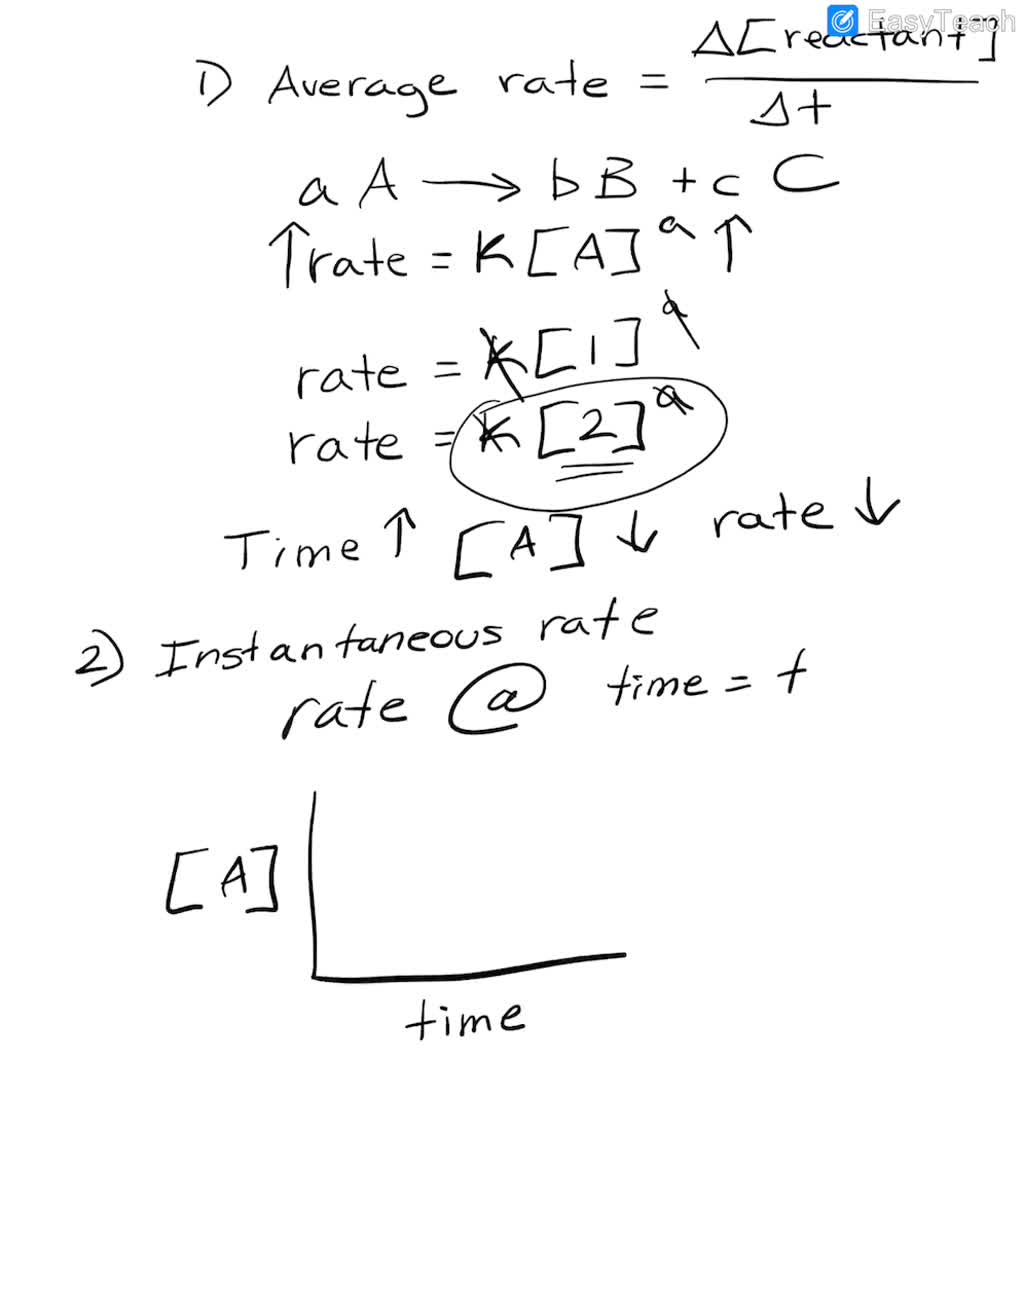 EasyTeach
1) Average rate = Δ[reactant] / Δt
a A → b B + c C
↑ rate = K [A]^a ↑
rate = K [1]^a
rate = K [2]^a
Time ↑ [A] ↓ rate ↓
2) Instantaneous rate
rate @ time = t
[A]
time